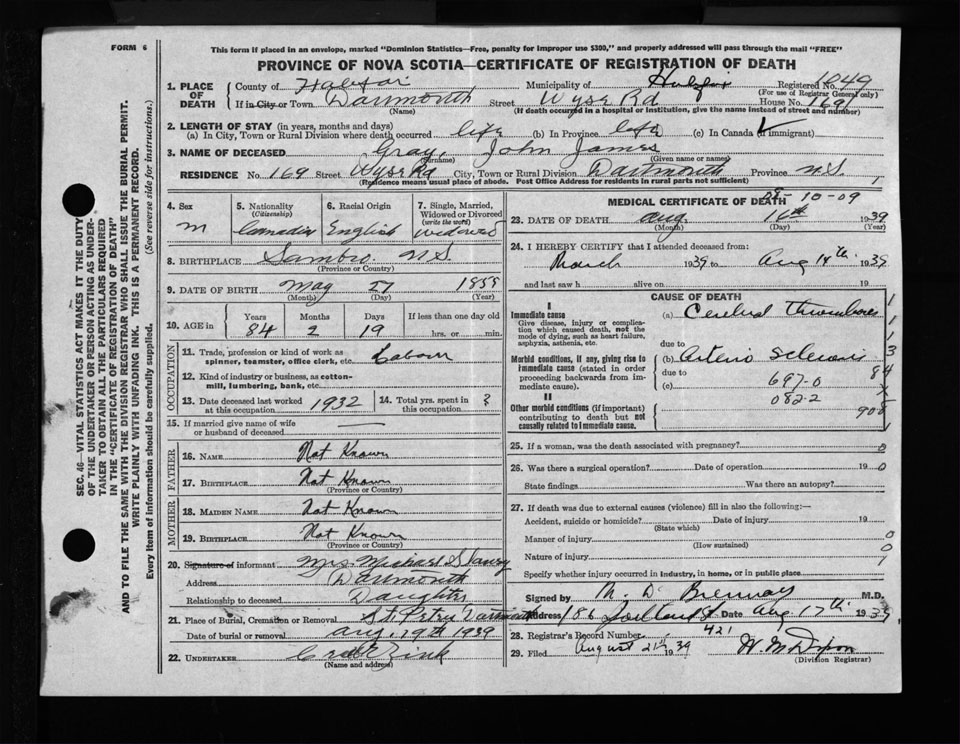 FORM 6
This form if placed in an envelope, marked "Dominion Statistics—Free, penalty for improper use $300," and properly addressed will pass through the mail "FREE"
PROVINCE OF NOVA SCOTIA—CERTIFICATE OF REGISTRATION OF DEATH
SEC. 46—VITAL STATISTICS ACT MAKES IT THE DUTY
OF THE UNDERTAKER OR PERSON ACTING AS UNDER-
TAKER TO OBTAIN ALL THE PARTICULARS REQUIRED
IN THE "CERTIFICATE OF REGISTRATION OF DEATH"
AND TO FILE THE SAME WITH THE DIVISION REGISTRAR WHO SHALL ISSUE THE BURIAL PERMIT.
WRITE PLAINLY WITH UNFADING INK. THIS IS A PERMANENT RECORD.
Every item of information should be carefully supplied. (See reverse side for instructions.)
1. PLACE OF DEATH County of Halifax Municipality of Halifax Registered 1049
(For use of Registrar General only)
If in City or Town Dartmouth Street Wyse Rd House No. 169
(Name) (If death occurred in a hospital or institution, give the name instead of street and number)
2. LENGTH OF STAY (in years, months and days)
(a) In City, Town or Rural Division where death occurred life (b) In Province life (c) In Canada (if immigrant)
3. NAME OF DECEASED Gray, John James
(Surname) (Given name or names)
RESIDENCE No. 169 Street Wyse Rd City, Town or Rural Division Dartmouth Province N.S.
(Residence means usual place of abode. Post Office Address for residents in rural parts not sufficient) 1
4. Sex 5. Nationality (Citizenship) 6. Racial Origin 7. Single, Married, Widowed or Divorced (write the word)
m Canadian English widowed
8. BIRTHPLACE Sambro N.S.
(Province or Country)
9. DATE OF BIRTH May 27 1855
(Month) (Day) (Year)
10. AGE in Years Months Days If less than one day old
84 2 19 hrs. or min.
OCCUPATION
11. Trade, profession or kind of work as spinner, teamster, office clerk, etc. Labour
12. Kind of industry or business, as cotton-mill, lumbering, bank, etc.
13. Date deceased last worked at this occupation 1932 14. Total yrs. spent in this occupation ?
15. If married give name of wife or husband of deceased —
FATHER
16. NAME Not Known
17. BIRTHPLACE Not Known
(Province or Country)
MOTHER
18. MAIDEN NAME Not Known
19. BIRTHPLACE Not Known
(Province or Country)
20. Signature of informant Mrs Michael
Address Dartmouth
Relationship to deceased Daughter
21. Place of Burial, Cremation or Removal St Peters Dartmouth
Date of burial or removal Aug. 19th 1939
22. UNDERTAKER Zink
(Name and address)
MEDICAL CERTIFICATE OF DEATH
08-10-09
23. DATE OF DEATH Aug 16th 1939
(Month) (Day) (Year)
24. I HEREBY CERTIFY that I attended deceased from:
March 1939 to Aug 14th 1939
and last saw h alive on 19
CAUSE OF DEATH
I
Immediate cause
Give disease, injury or complication which caused death, not the mode of dying, such as heart failure, asphyxia, asthenia, etc.
(a) Cerebral Thrombosis
due to
Morbid conditions, if any, giving rise to immediate cause (stated in order proceeding backwards from immediate cause).
(b) Arterio Sclerosis
due to
(c)
697-0
082-2
II
Other morbid conditions (if important) contributing to death but not causally related to immediate cause.
1
1
1
3
84
900
25. If a woman, was the death associated with pregnancy? 0
26. Was there a surgical operation? Date of operation 19 0
State findings Was there an autopsy?
27. If death was due to external causes (violence) fill in also the following:—
Accident, suicide or homicide? Date of injury 19
(State which)
Manner of injury 0
(How sustained)
Nature of injury
Specify whether injury occurred in industry, in home, or in public place
Signed by M. D. Brennay M.D.
Address 186 Portland St Date Aug 17th 1939
28. Registrar's Record Number 421
29. Filed August 21st 1939
(Division Registrar)